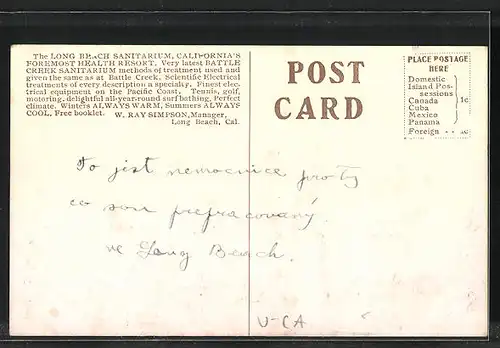 The LONG BEACH SANITARIUM, CALIFORNIA'S
FOREMOST HEALTH RESORT. Very latest BATTLE
CREEK SANITARIUM methods of treatment used and
given the same as at Battle Creek. Scientific Electrical
treatments of every description a specialty. Finest elec-
trical equipment on the Pacific Coast. Tennis, golf,
motoring, delightful all-year-round surf bathing. Perfect
climate. Winters ALWAYS WARM, Summers ALWAYS
COOL, Free booklet. W. RAY SIMPSON, Manager,
Long Beach, Cal.
POST
CARD
PLACE POSTAGE
HERE
Domestic
Island Pos-
sessions
Canada 1c
Cuba
Mexico
Panama
Foreign . . 2c
To jest nemocnice pro ty
co sou prepracovaný
ve Long Beach.
U-CA